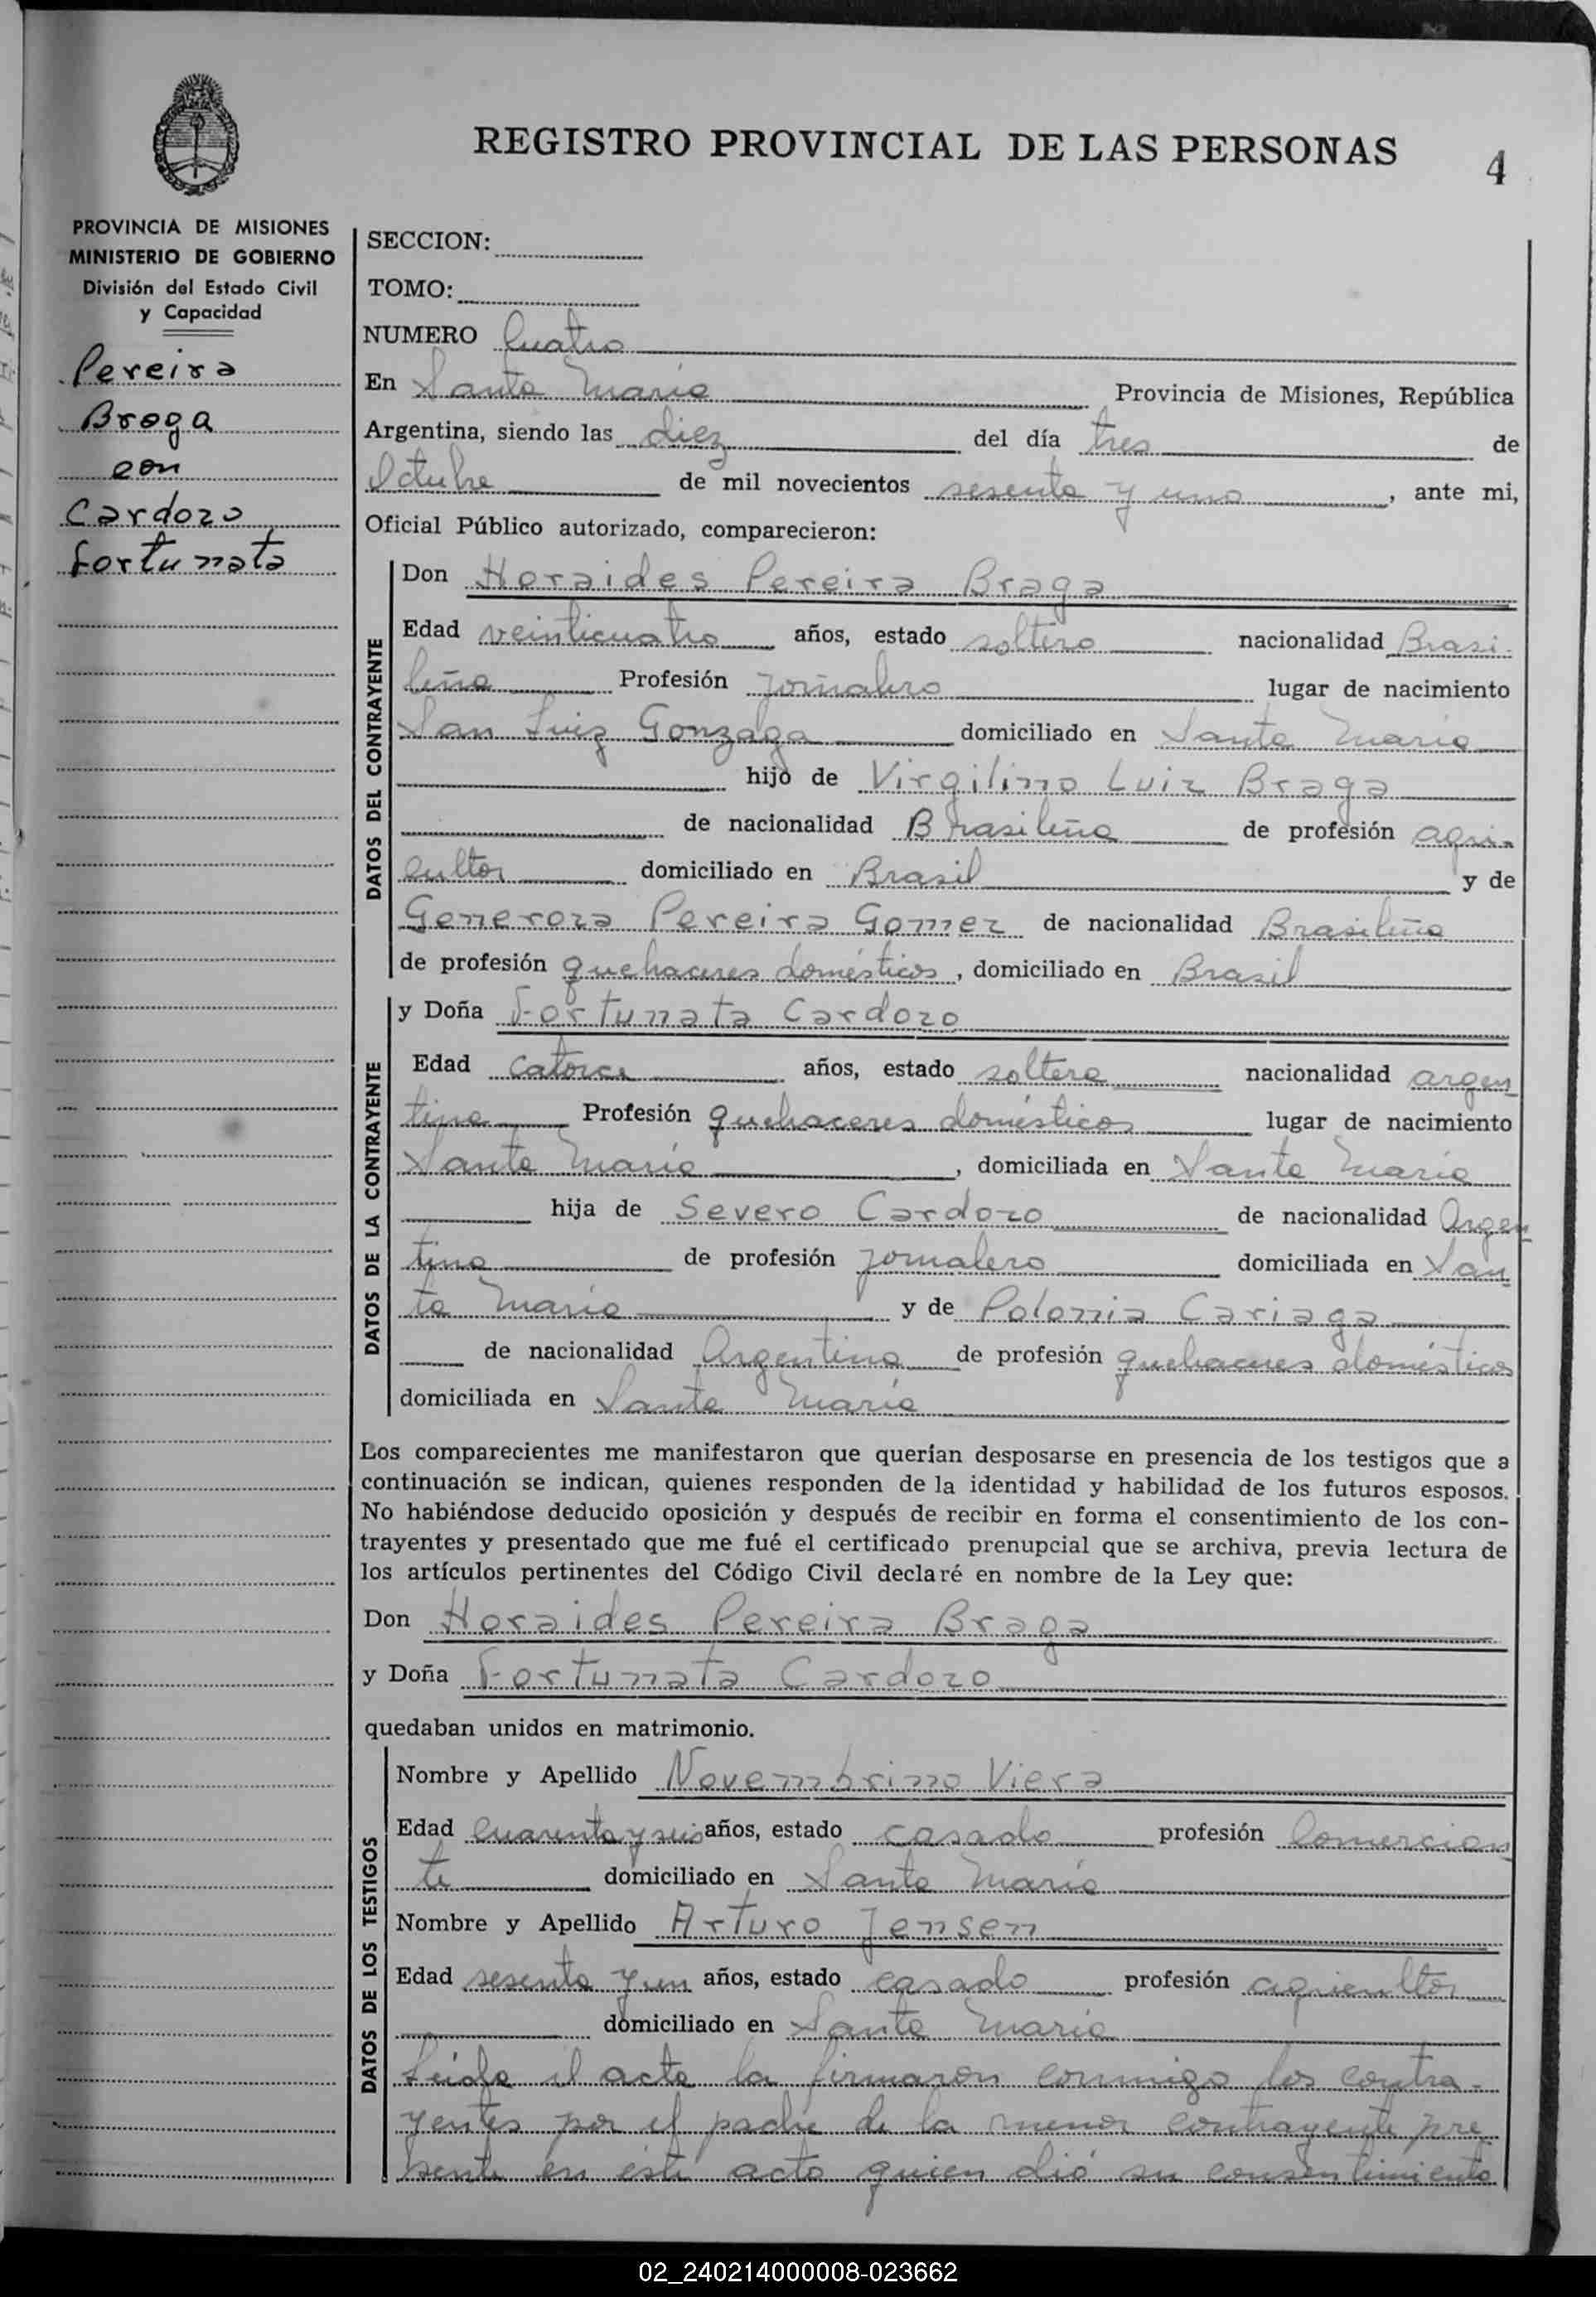 REGISTRO PROVINCIAL DE LAS PERSONAS
4
PROVINCIA DE MISIONES
MINISTERIO DE GOBIERNO
División del Estado Civil
y Capacidad
Pereira
Braga
con
Cardozo
Fortunata
SECCION:
TOMO:
NUMERO Cuatro
En Santa María Provincia de Misiones, República
Argentina, siendo las diez del día tres de
Octubre de mil novecientos sesenta y uno, ante mi,
Oficial Público autorizado, comparecieron:
DATOS DEL CONTRAYENTE
Don Horaides Pereira Braga
Edad veinticuatro años, estado soltero nacionalidad Brasi-
leña Profesión Jornalero lugar de nacimiento
San Luiz Gonzaga domiciliado en Santa María
hijo de Virgilino Luiz Braga
de nacionalidad Brasileña de profesión agri-
cultor domiciliado en Brasil y de
Generoza Pereira Gomez de nacionalidad Brasileña
de profesión quehaceres domésticos, domiciliado en Brasil
DATOS DE LA CONTRAYENTE
y Doña Fortunata Cardozo
Edad catorce años, estado soltera nacionalidad argen
tina Profesión quehaceres domésticos lugar de nacimiento
Santa María, domiciliada en Santa María
hija de Severo Cardozo de nacionalidad Argen
tina de profesión jornalero domiciliada en San
ta María y de Polonia Cariaga
de nacionalidad Argentina de profesión quehaceres domésticos
domiciliada en Santa María
Los comparecientes me manifestaron que querían desposarse en presencia de los testigos que a
continuación se indican, quienes responden de la identidad y habilidad de los futuros esposos.
No habiéndose deducido oposición y después de recibir en forma el consentimiento de los con-
trayentes y presentado que me fué el certificado prenupcial que se archiva, previa lectura de
los artículos pertinentes del Código Civil declaré en nombre de la Ley que:
Don Horaides Pereira Braga
y Doña Fortunata Cardozo
quedaban unidos en matrimonio.
DATOS DE LOS TESTIGOS
Nombre y Apellido Novembrino Viera
Edad cuarenta y seis años, estado casado profesión Comercian
te domiciliado en Santa María
Nombre y Apellido Arturo Jensen
Edad sesenta y un años, estado casado profesión agricultor
domiciliado en Santa María
Leída el acta la firmaron conmigo los contra-
yentes por el padre de la menor contrayente pre
sente en este acto quien dió su consentimiento
02_240214000008-023662